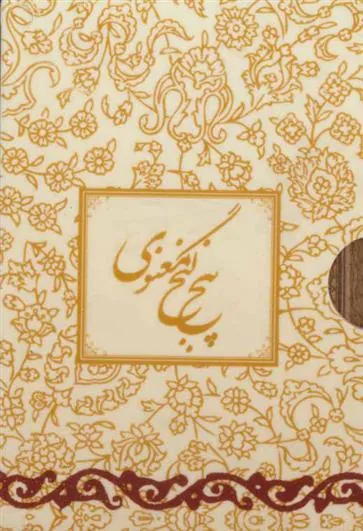 پنج گنج معنوی